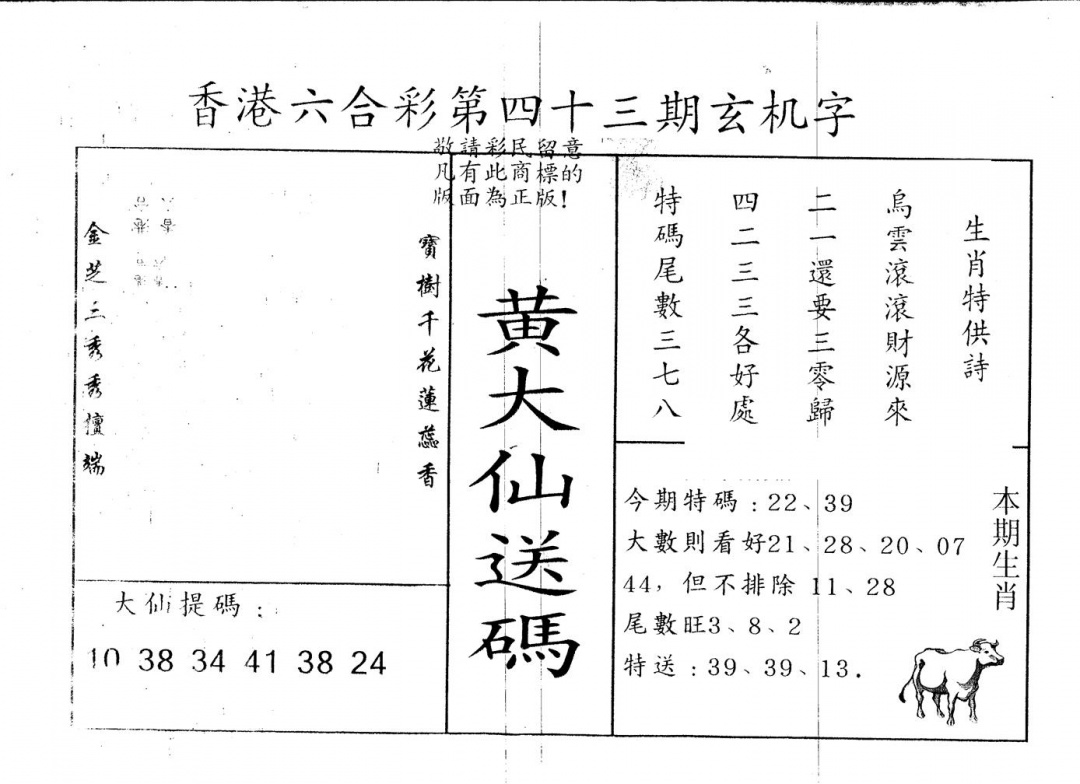 香港六合彩第四十三期玄机字
敬請彩民留意
凡有此商標的
版面為正版!
生肖特供詩
烏雲滾滾財源來
二一還要三零歸
四二三三各好處
特碼尾數三七八
黄大仙送碼
寶樹千花蓮蕊香
金芝三秀秀儃端
大仙提碼:
10 38 34 41 38 24
本期生肖
今期特碼:22、39
大數則看好21、28、20、07
44,但不排除 11、28
尾數旺3、8、2
特送:39、39、13.